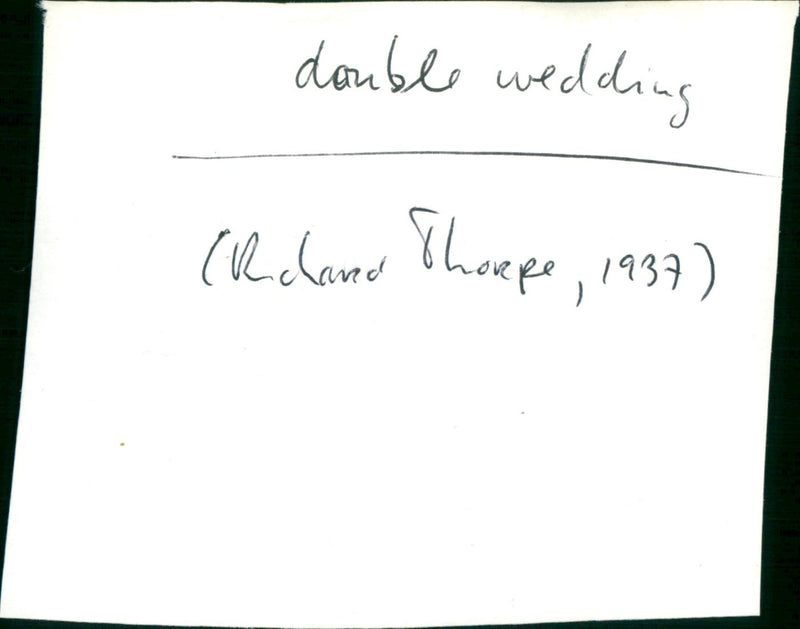 double wedding
(Richard Thorpe, 1937)